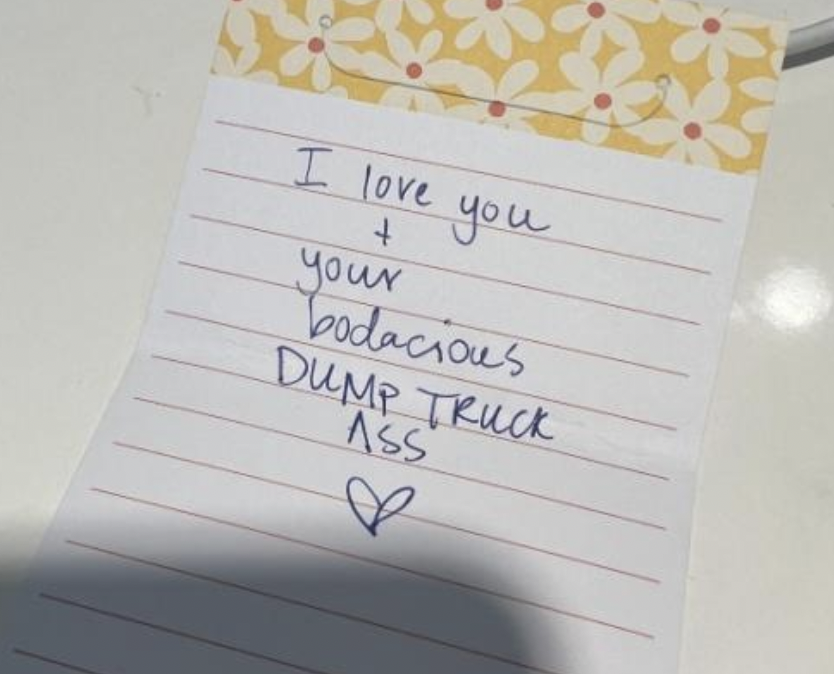 I love you
+
your
bodacious
DUMP TRUCK
ASS